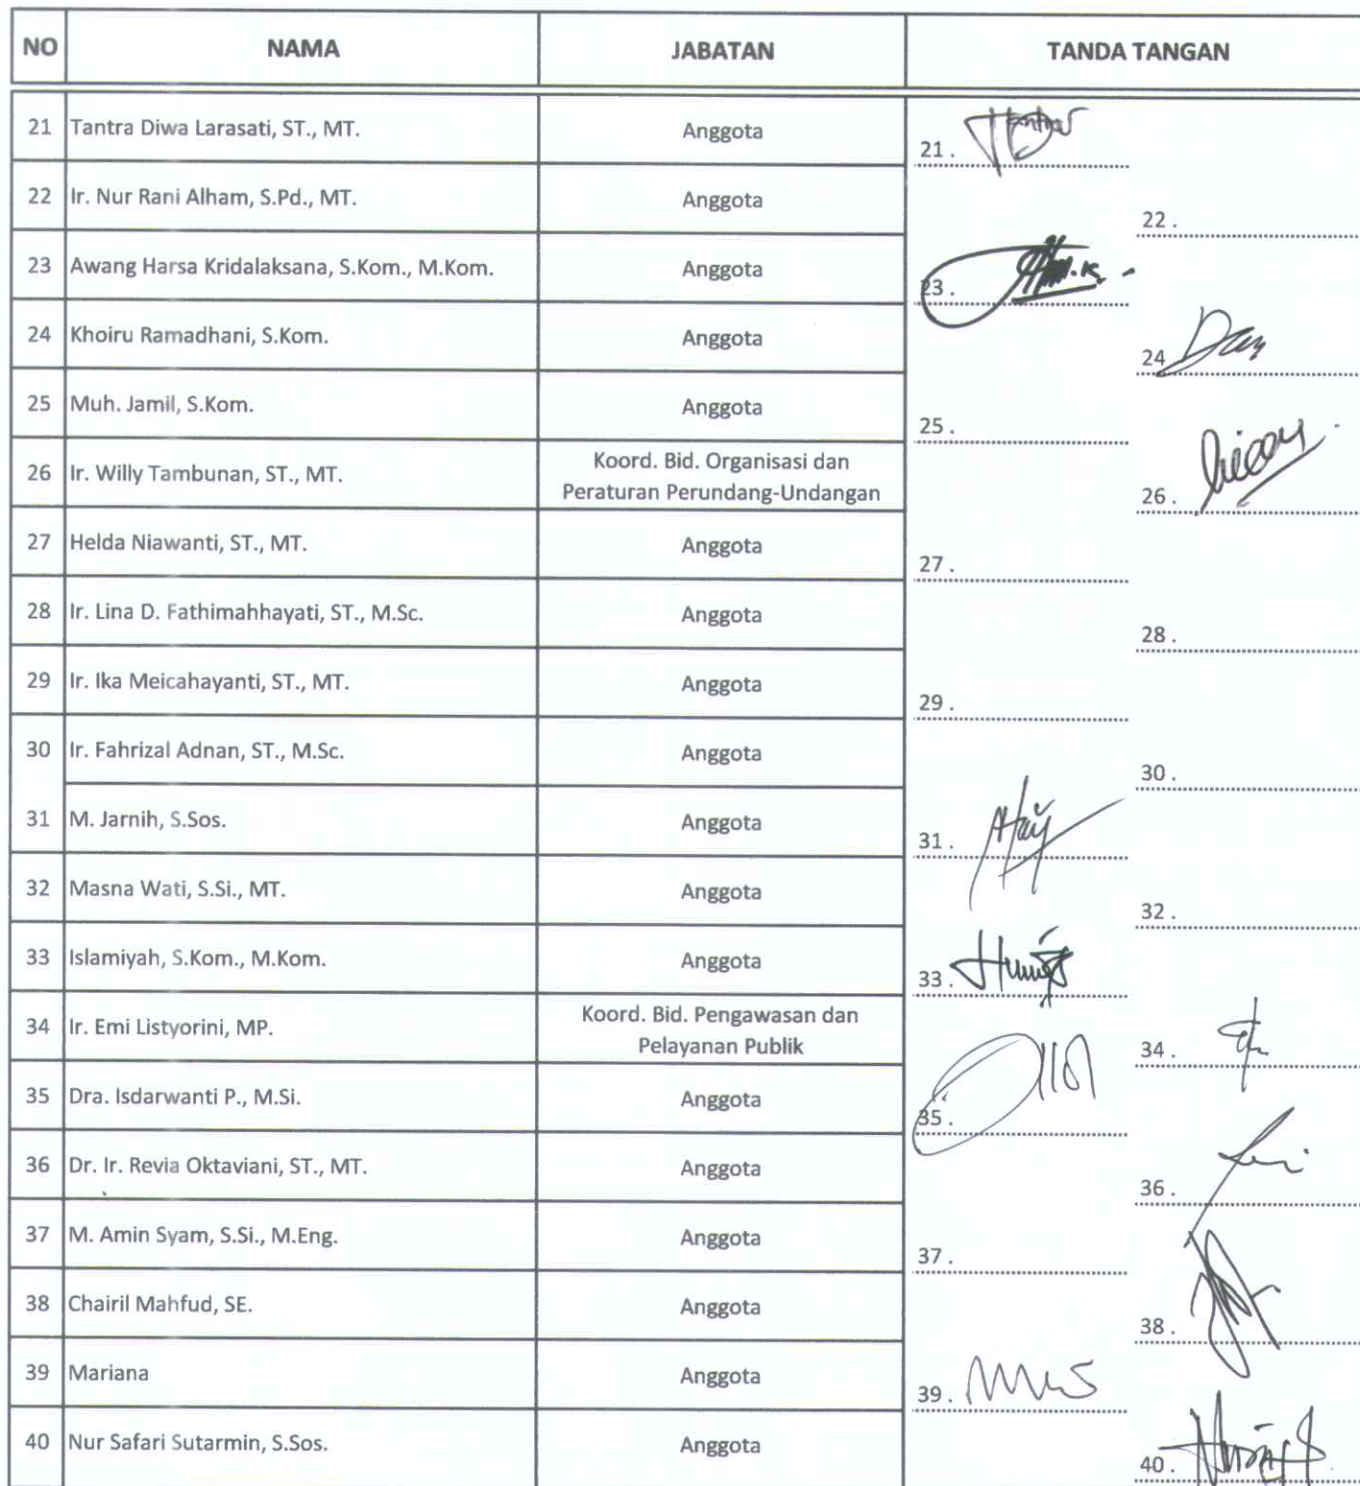 NO NAMA JABATAN TANDA TANGAN
21 Tantra Diwa Larasati, ST., MT. Anggota 21 .
22 Ir. Nur Rani Alham, S.Pd., MT. Anggota 22 .
23 Awang Harsa Kridalaksana, S.Kom., M.Kom. Anggota 23 .
24 Khoiru Ramadhani, S.Kom. Anggota 24
25 Muh. Jamil, S.Kom. Anggota 25 .
26 Ir. Willy Tambunan, ST., MT. Koord. Bid. Organisasi dan
Peraturan Perundang-Undangan 26 .
27 Helda Niawanti, ST., MT. Anggota 27 .
28 Ir. Lina D. Fathimahhayati, ST., M.Sc. Anggota 28 .
29 Ir. Ika Meicahayanti, ST., MT. Anggota 29 .
30 Ir. Fahrizal Adnan, ST., M.Sc. Anggota 30 .
31 M. Jarnih, S.Sos. Anggota 31 .
32 Masna Wati, S.Si., MT. Anggota 32 .
33 Islamiyah, S.Kom., M.Kom. Anggota 33 .
34 Ir. Emi Listyorini, MP. Koord. Bid. Pengawasan dan
Pelayanan Publik 34 .
35 Dra. Isdarwanti P., M.Si. Anggota 35 .
36 Dr. Ir. Revia Oktaviani, ST., MT. Anggota 36 .
37 M. Amin Syam, S.Si., M.Eng. Anggota 37 .
38 Chairil Mahfud, SE. Anggota 38 .
39 Mariana Anggota 39 .
40 Nur Safari Sutarmin, S.Sos. Anggota 40 .